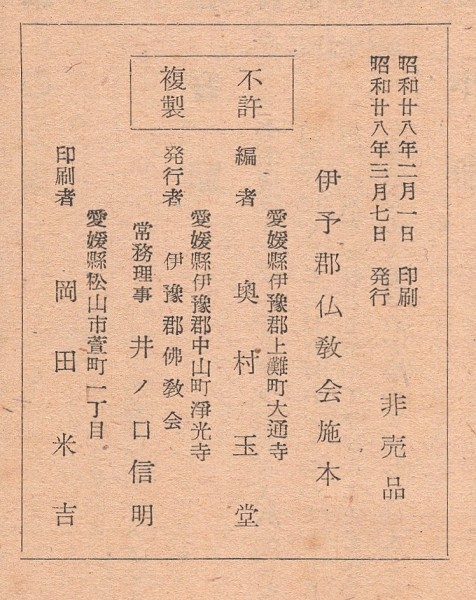 昭和廿八年二月一日 印刷
昭和廿八年三月七日 発行
非売品
伊予郡仏教会施本
不許
複製
愛媛縣伊豫郡上灘町大通寺
編者 奥村玉堂
愛媛縣伊豫郡中山町淨光寺
発行者 伊豫郡佛教会
常務理事 井ノ口信明
愛媛縣松山市萱町一丁目
印刷者 岡田米吉